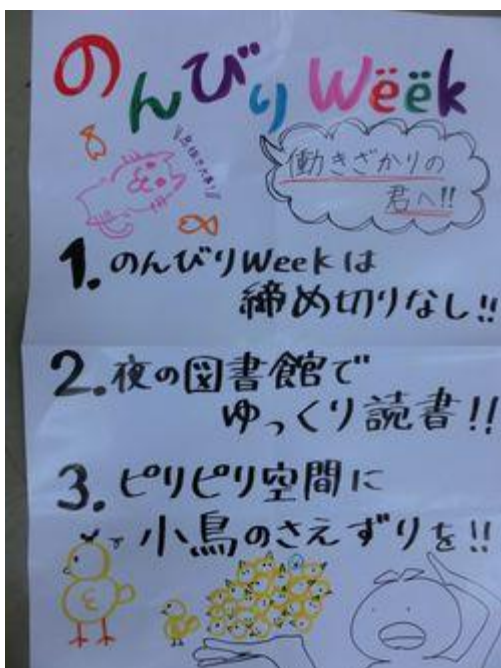 のんびりWëëk
息抜き大事!!
働きざかりの
君へ!!
1.のんびりWeekは
締め切りなし!!
2.夜の図書館で
ゆっくり読書!!
3.ピリピリ空間に
小鳥のさえずりを!!